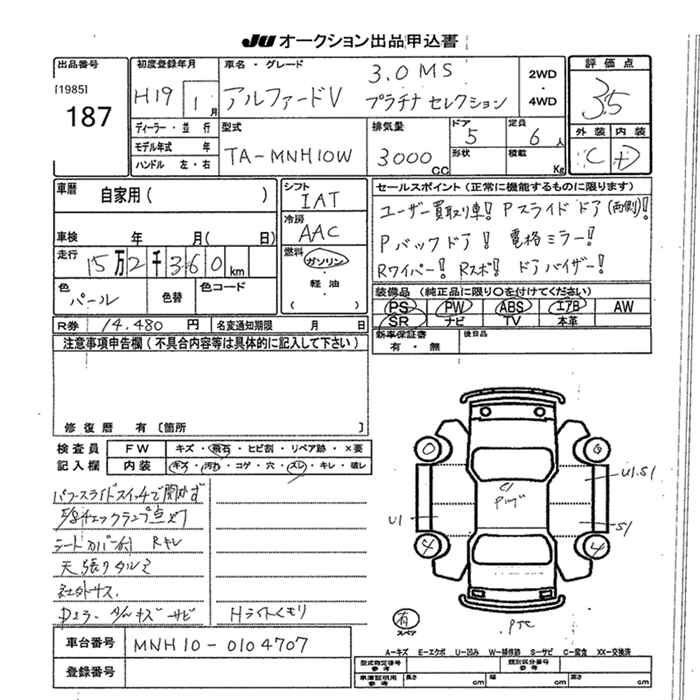 JU オークション出品申込書
出品番号
[1985]
187
初度登録年月
H19 1月
車名・グレード
アルファードV
3.0 MS
プラチナセレクション
2WD
・
4WD
評価点
3.5
ディーラー・並行
モデル年式 年
ハンドル 左・右
型式
TA-MNH10W
排気量
3000 cc
ドア 5
形状
定員 6人
積載 Kg
外装 内装
C D
車歴 自家用( )
車検 年 月( 日)
走行 15万2千360km
色 パール
色替
色コード
シフト
IAT
冷房
AAC
燃料
ガソリン
・
軽油
・
( )
セールスポイント(正常に機能するものに限ります)
ユーザー買取り車! Pスライドドア(両側)!
Pバックドア! 電格ミラー!
Rワイパー! Rスポ! ドアバイザー!
装備品 (純正品に限り○を付けてください)
PS PW ABS エアB AW
SR ナビ TV 本革
R券 14.480 円
名変通知期限 月 日
新車保証書
有・無
後日品
注意事項申告欄(不具合内容等は具体的に記入して下さい)
修復歴 有〔箇所 〕
検査員
記入欄
FW キズ・飛石・ヒビ割・リペア跡・×要
内装 キズ・汚れ・コゲ・穴・スレ・キレ・破レ
パワースライドスイッチで開かず
チェックランプ点灯
シートカバー付 Rキレ
天張りタルミ
社外サス
キズ サビ
Hライトくモリ
U1
U1.S1
S1
有
スペア
A-キズ E-エクボ U-凹み W-補修跡 S-サビ C-腐食 XX-交換済
車台番号 MNH10-0104707
登録番号
型式指定番号
参考
類別区分番号
参考
車庫証明用
参考
長さ cm
幅 cm
高さ cm